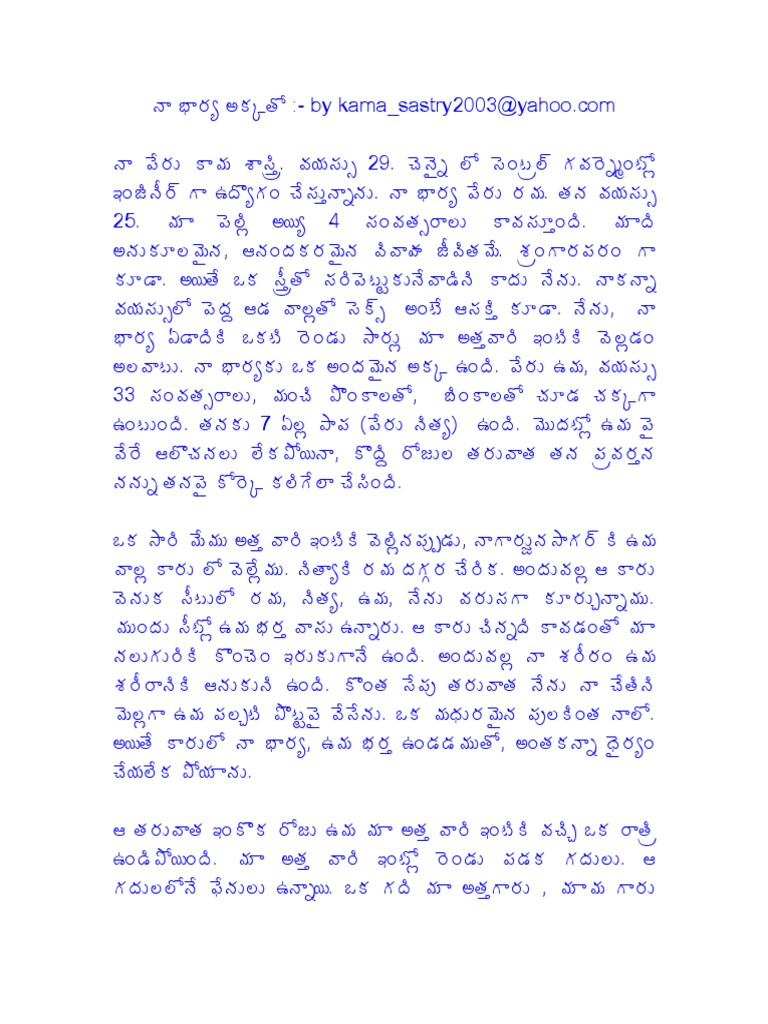 నా భార్య అక్కతో :- by kama_sastry2003@yahoo.com
నా పేరు కామ శాస్త్రి. వయస్సు 29. చెన్నై లో సెంట్రల్ గవర్నమెంట్లో
ఇంజినీర్ గా ఉద్యోగం చేస్తున్నాను. నా భార్య పేరు రమ. తన వయస్సు
25. మా పెల్లి అయ్యి 4 సంవత్సరాలు కావస్తూంది. మాది
అనుకూలమైన, ఆనందకరమైన వివాహ జీవితమే. శ్రంగారపరం గా
కూడా. అయితే ఒక స్త్రీతో సరిపెట్టుకునేవాడిని కాదు నేను. నాకన్నా
వయస్సులో పెద్ద ఆడ వాల్లతో సెక్స్ అంటే ఆసక్తి కూడా. నేను, నా
భార్య ఏడాదికి ఒకటి రెండు సార్లు మా అత్తవారి ఇంటికి వెల్లడం
అలవాటు. నా భార్యకు ఒక అందమైన అక్క ఉంది. పేరు ఉమ, వయస్సు
33 సంవత్సరాలు, మంచి పొంకాలతో, బింకాలతో చూడ చక్కగా
ఉంటుంది. తనకు 7 ఏల్ల పాప (పేరు నిత్య) ఉంది. మొదట్లో ఉమ పై
వేరే ఆలొచనలు లేకపోయినా, కొద్ది రోజుల తరువాత తన ప్రవర్తన
నన్ను తనపై కోర్కె కలిగేలా చేసింది.
ఒక సారి మేము అత్త వారి ఇంటికి వెల్లినప్పుడు, నాగార్జునసాగర్ కి ఉమ
వాల్ల కారు లో వెల్లేము. నిత్యాకి రమ దగ్గర చేరిక. అందువల్ల ఆ కారు
వెనుక సీటులో రమ, నిత్య, ఉమ, నేను వరుసగా కూర్చున్నాము.
ముందు సీట్లో ఉమ భర్త వాసు ఉన్నారు. ఆ కారు చిన్నది కావడంతో మా
నలుగురికి కొంచెం ఇరుకుగానే ఉంది. అందువల్ల నా శరీరం ఉమ
శరీరానికి ఆనుకుని ఉంది. కొంత సేపు తరువాత నేను నా చేతిని
మెల్లగా ఉమ పల్చటి పొట్టపై వేసేను. ఒక మధురమైన పులకింత నాలో.
అయితే కారులో నా భార్య, ఉమ భర్త ఉండడముతో, అంతకన్నా ధైర్యం
చేయలేక పోయాను.
ఆ తరువాత ఇంకొక రోజు ఉమ మా అత్త వారి ఇంటికి వచ్చి ఒక రాత్రి
ఉండిపోయింది. మా అత్త వారి ఇంట్లో రెండు పడక గదులు. ఆ
గదులలోనే ఫేనులు ఉన్నాయి. ఒక గది మా అత్తగారు , మామ గారు